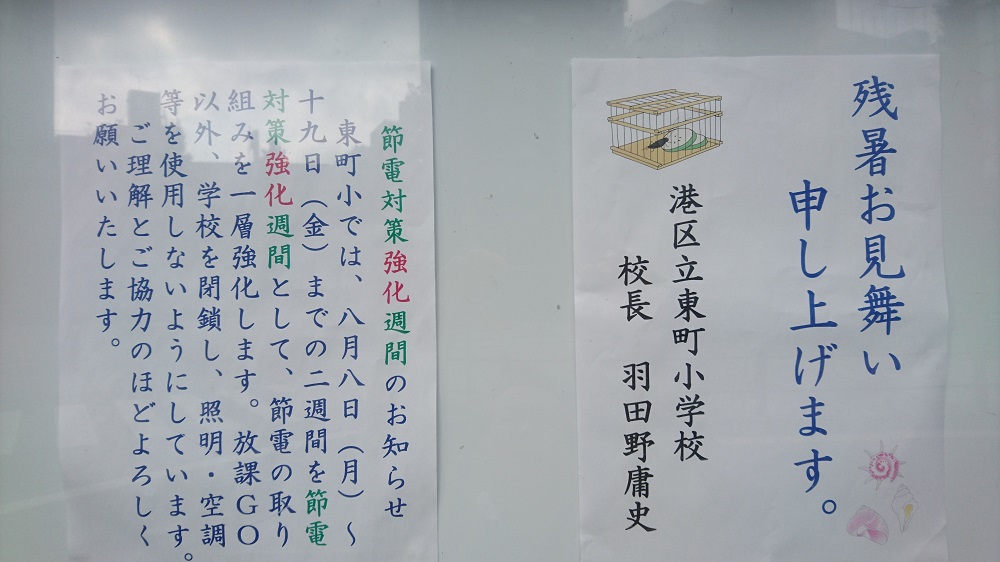 残暑お見舞い
申し上げます。
港区立東町小学校
校長 羽田野庸史
節電対策強化週間のお知らせ
東町小では、八月八日(月)~
十九日(金)までの二週間を節電
対策強化週間として、節電の取り
組みを一層強化します。放課GO
以外、学校を閉鎖し、照明・空調
等を使用しないようにしています。
ご理解とご協力のほどよろしく
お願いいたします。